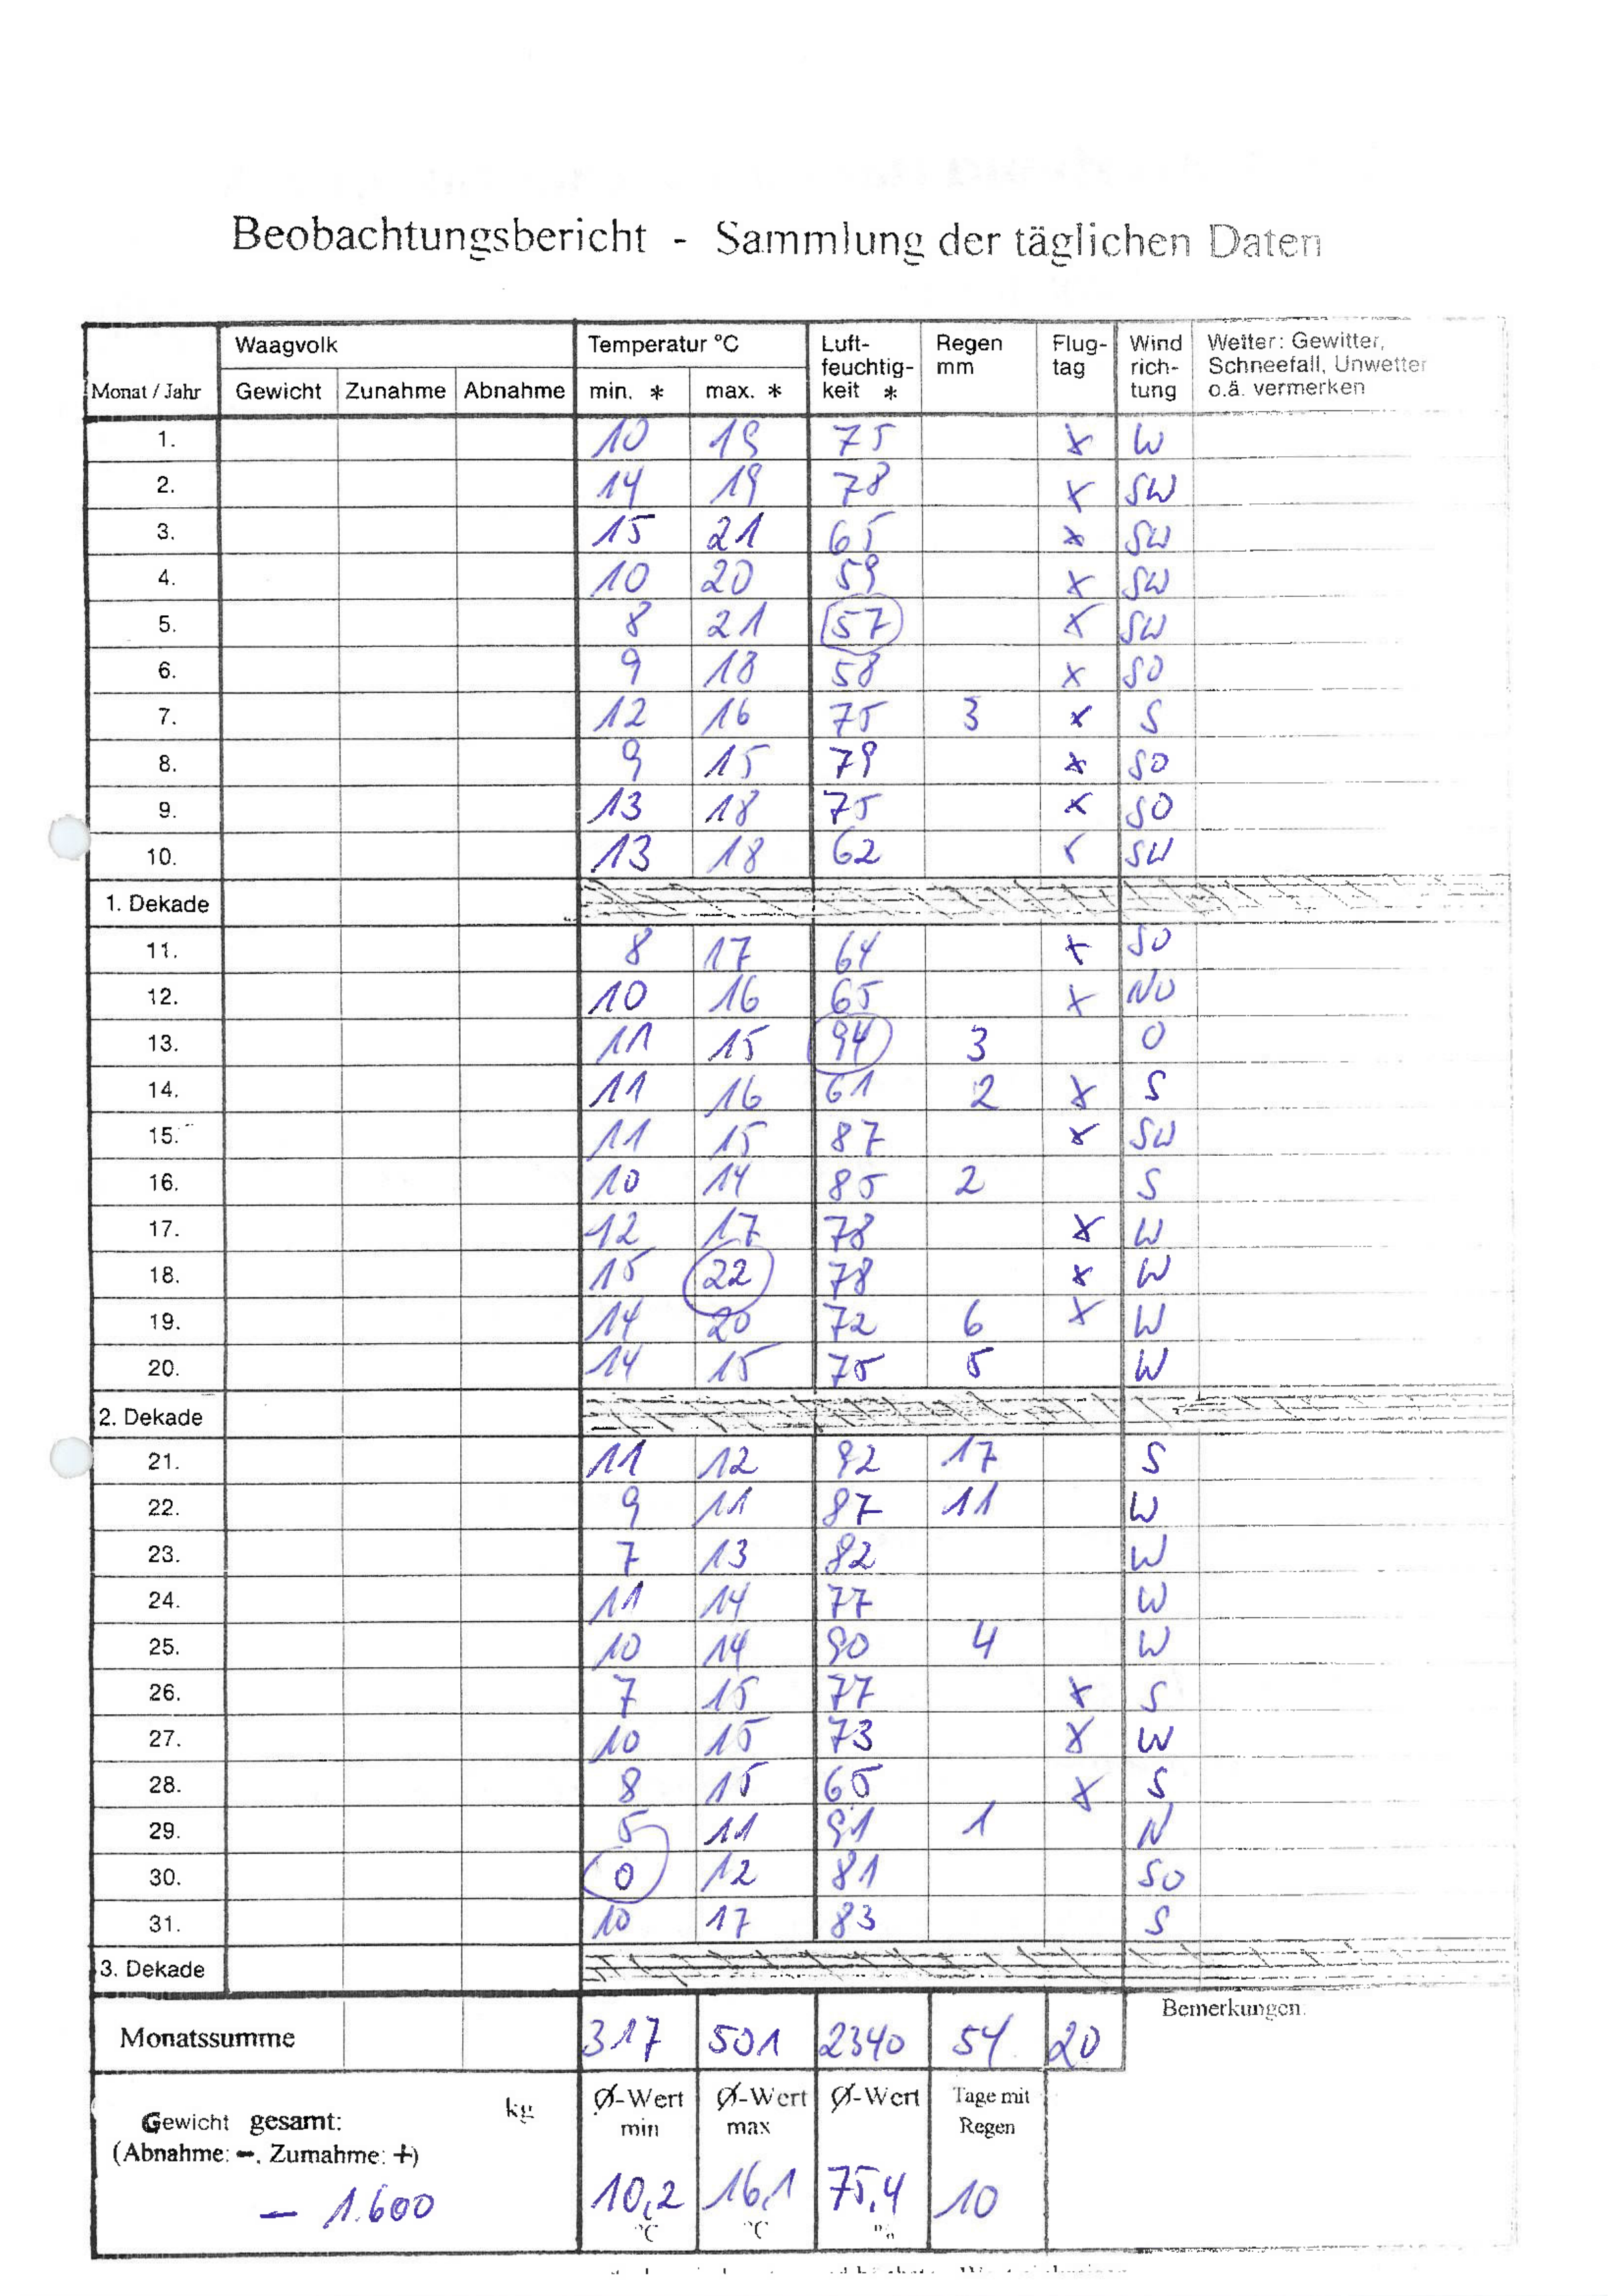 Beobachtungsbericht - Sammlung der täglichen Daten
Monat / Jahr Waagvolk Temperatur °C Luft-feuchtig-keit * Regen mm Flug-tag Wind rich-tung Wetter: Gewitter, Schneefall, Unwetter o.ä. vermerken
Gewicht Zunahme Abnahme min. * max. *
1. 10 19 75 x W
2. 14 19 78 x SW
3. 15 21 65 x SW
4. 10 20 59 x SW
5. 8 21 57 x SW
6. 9 18 58 x SO
7. 12 16 75 3 x S
8. 9 15 79 x SO
9. 13 18 75 x SO
10. 13 18 62 x SW
1. Dekade
11. 8 17 64 x SO
12. 10 16 65 x NO
13. 11 15 94 3 O
14. 11 16 61 2 x S
15. 11 15 87 x SW
16. 10 14 85 2 S
17. 12 17 78 x W
18. 15 22 78 x W
19. 14 20 72 6 x W
20. 14 15 75 5 W
2. Dekade
21. 11 12 92 17 S
22. 9 11 87 11 W
23. 7 13 82 W
24. 11 14 77 W
25. 10 14 90 4 W
26. 7 15 77 x S
27. 10 15 73 x W
28. 8 15 65 x S
29. 5 11 91 1 N
30. 0 12 81 SO
31. 10 17 83 S
3. Dekade
Monatssumme 317 501 2340 54 20 Bemerkungen:
Gewicht gesamt: kg Ø-Wert min Ø-Wert max Ø-Wert Tage mit Regen
(Abnahme: -, Zumahme: +)
- 1.600 10,2 °C 16,1 °C 75,4 % 10